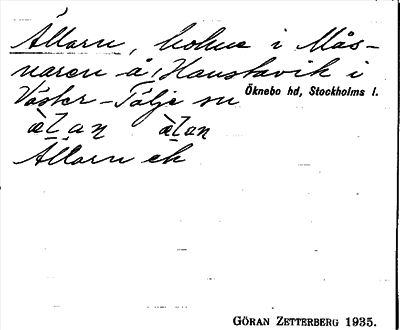 Ällarn, holme i Mås-
naren å Hanstavik i
Väster-Tälje sn
Öknebo hd, Stockholms l.
àⱬan àⱬan
Ällarn ek
GÖRAN ZETTERBERG 1935.